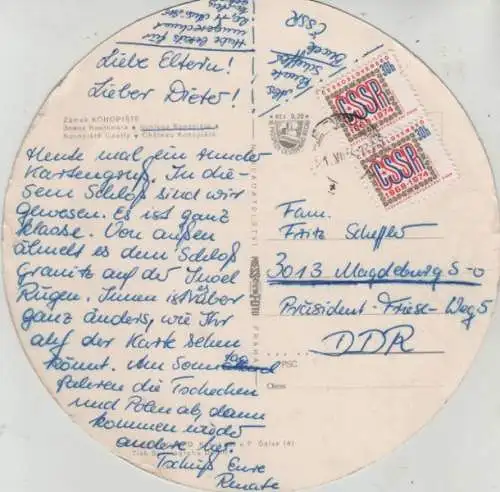 Liebe Eltern!
Lieber Dieter!
Zámek KONOPIŠTĚ
Schloss Konopiště
Château Konopiště
Heute mal ein runder
Kartengruß. In die-
sem Schloß sind wir
gewesen. Es ist ganz
klasse. Von außen
ähnelt es dem Schloß
Granitz auf der Insel
Rügen. Innen ist es aber
ganz anders, wie Ihr
auf der Karte sehen
könnt. Am Sonntag
fahren die Tschechen
und Polen ab, dann
kommen wieder
andere
Tschüß Eure
Renate
ČSSR
KčS 0,30
ČESKOSLOVENSKO
30h
ČSSR
1969-1974
30h
ČSSR
1969-1974
Fam.
Fritz Scheffler
3013 Magdeburg S-O
Präsident-Friese-Weg 5
DDR
PSČ
Okres
PRESSFOTO
PRAHA